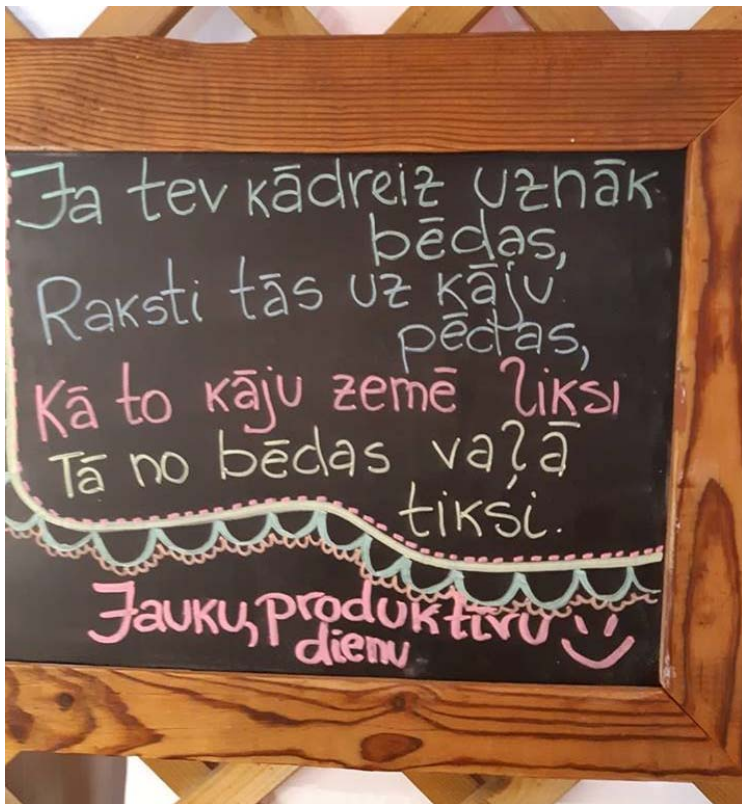 Ja tev kādreiz uznāk
bēdas,
Raksti tās uz kāju
pēdas,
Kā to kāju zemē liksi
Tā no bēdas vaļā
tiksi.
Jauku, produktīvu
dienu